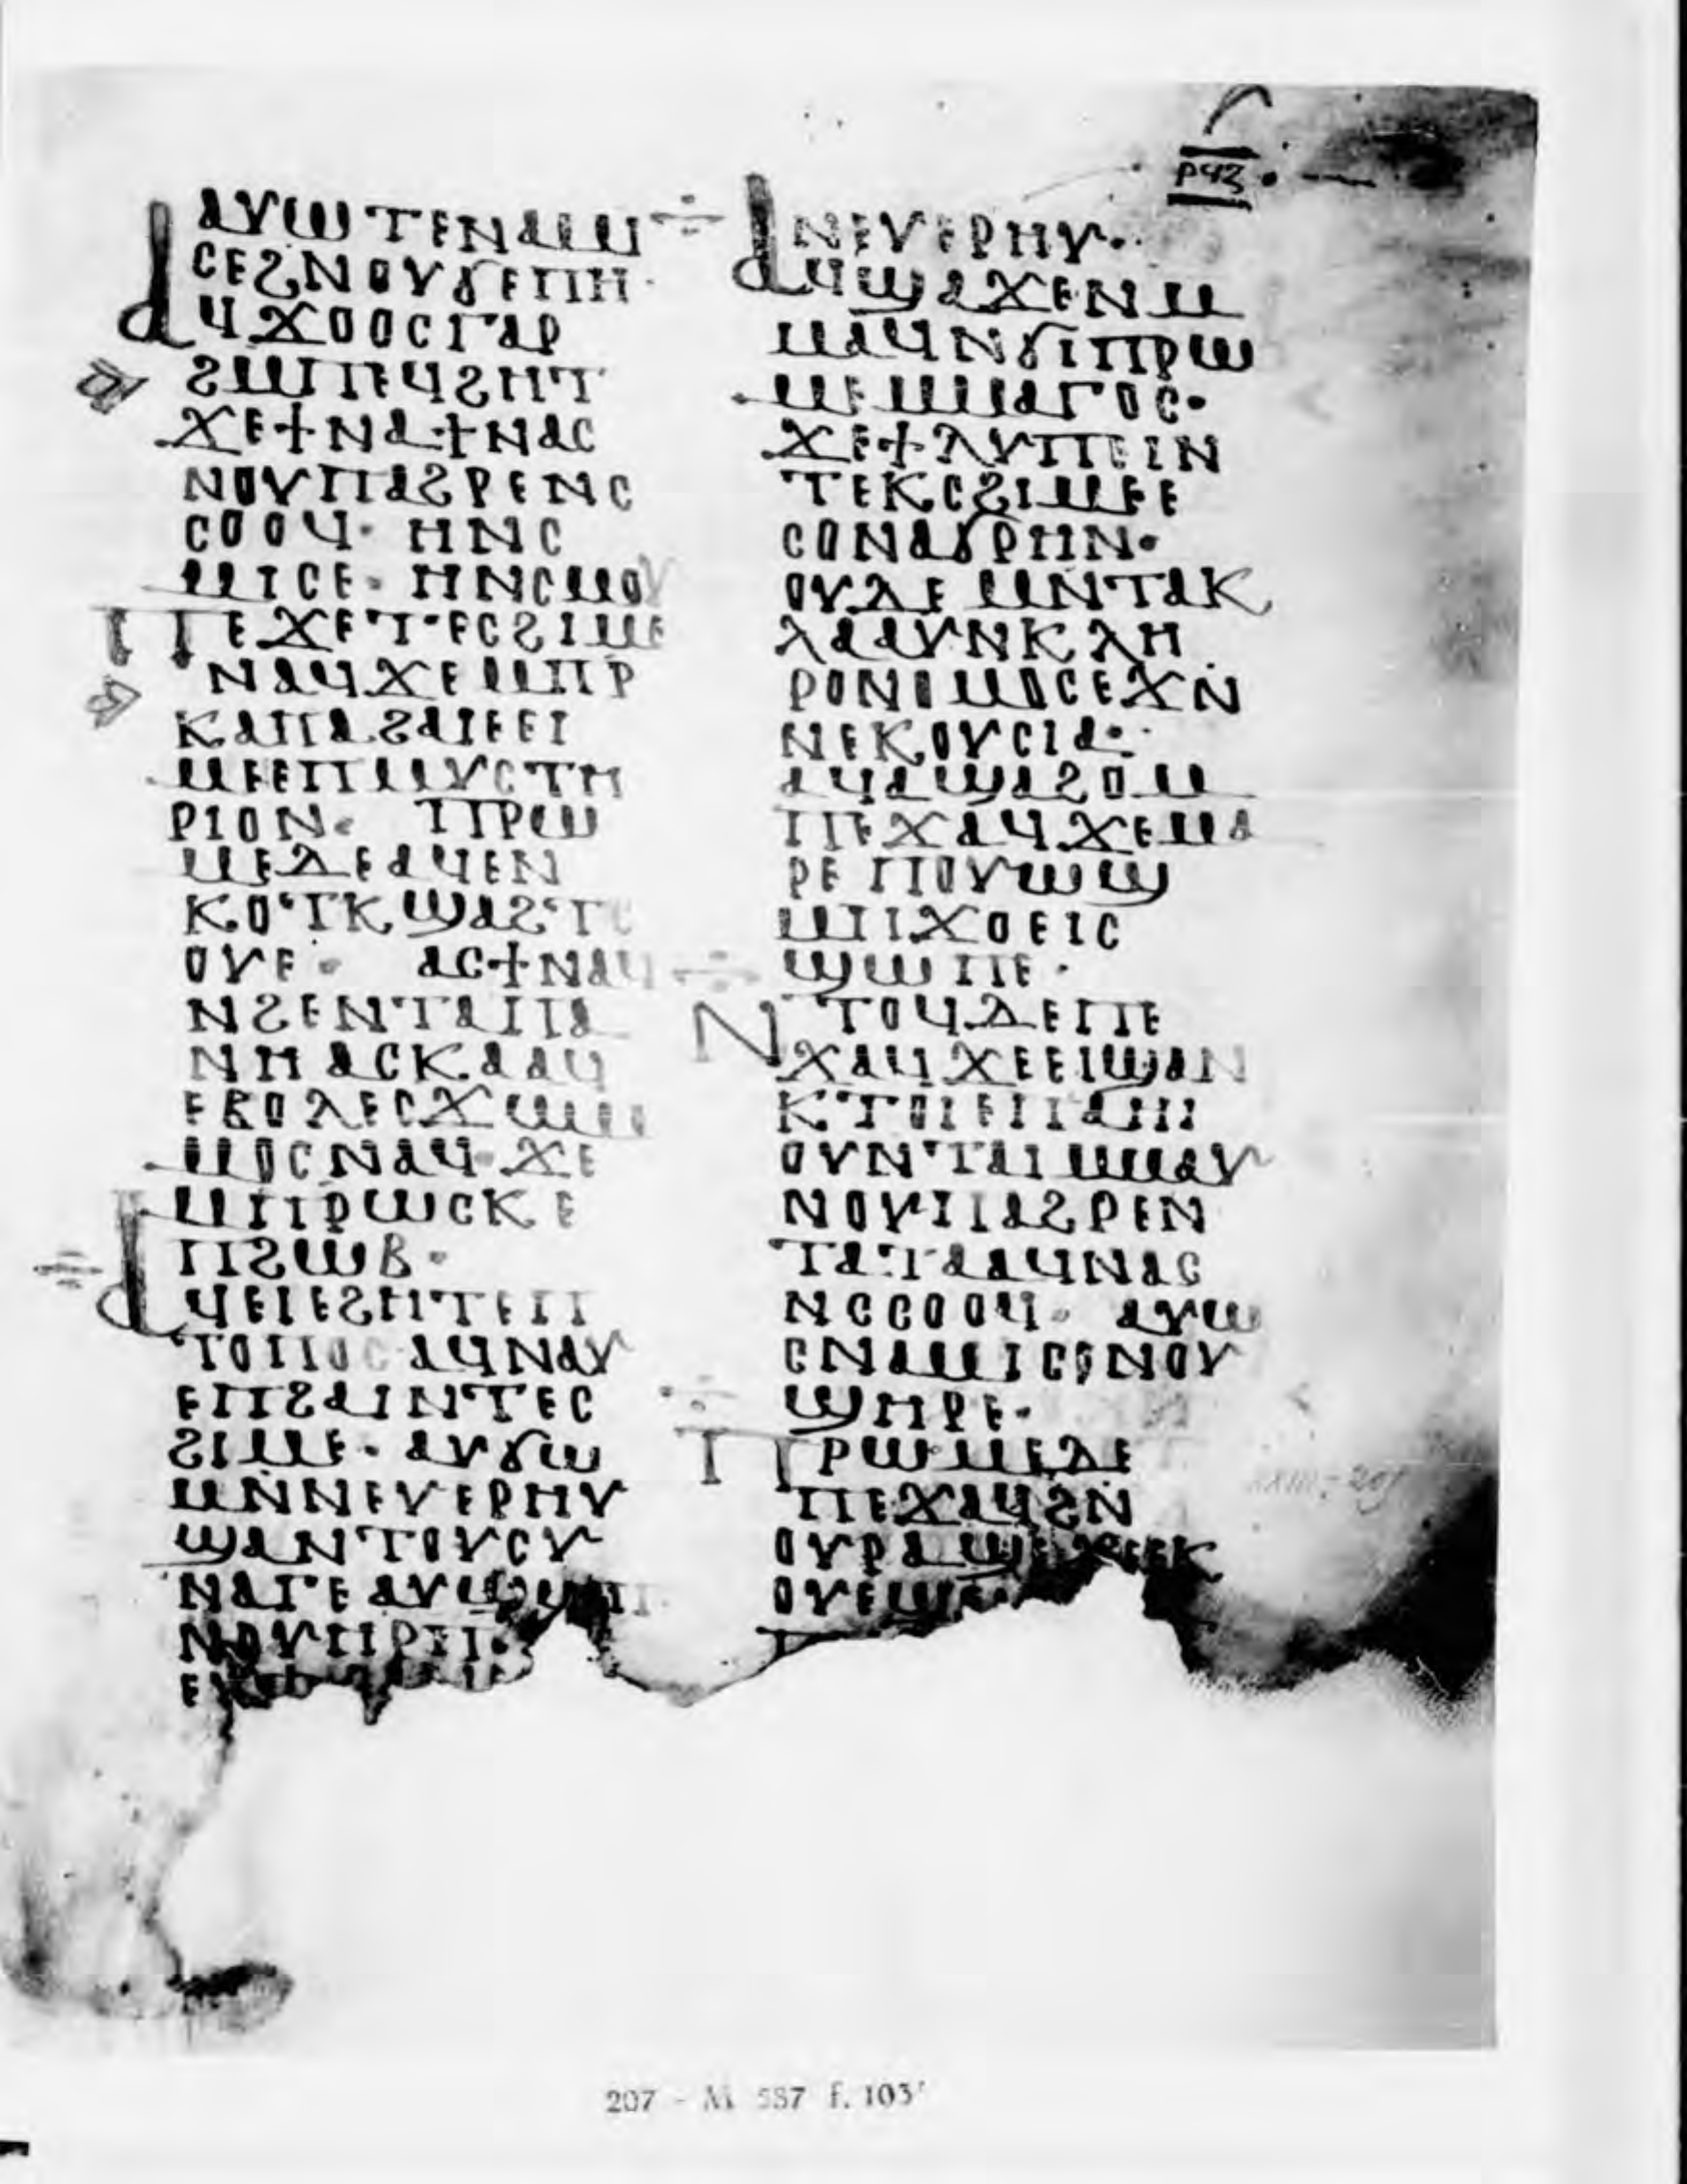 ⲣϥⲍ
ⲁⲩⲱ ⲧⲉⲛⲁⲙ
ⲥⲉϩⲛⲟⲩϭⲉⲡⲏ
ⲁϥϫⲟⲟⲥⲅⲁⲣ
ϩⲙⲡⲉϥϩⲏⲧ
ϫⲉϯⲛⲁϯⲛⲁⲥ
ⲛⲟⲩⲡⲁϩⲣⲉⲛⲥ
ⲥⲟⲟϥ· ⲏⲛⲥ
ⲙⲓⲥⲉ· ⲏⲛⲥⲙⲟⲩ
ⲡⲉϫⲉⲧⲉⲥϩⲓⲙⲉ
ⲛⲁϥϫⲉⲙⲡⲣ
ⲕⲁⲡⲁϩⲁⲓⲉⲉⲓ
ⲙⲉⲉⲡⲙⲩⲥⲧⲏ
ⲣⲓⲟⲛ· ⲡⲣⲱ
ⲙⲉⲇⲉⲁϥⲉⲛ
ⲕⲟⲧⲕϣⲁϩⲧⲉ
ⲟⲩⲉ· ⲁⲥϯⲛⲁϥ
ⲛϩⲉⲛⲧⲁⲓⲡⲁ
ⲛⲏ ⲁⲥⲕⲁⲁϥ
ⲉⲃⲟⲗⲉⲥϫⲱⲙ
ⲙⲟⲥⲛⲁϥ· ϫⲉ
ⲙⲡⲣⲱⲥⲕ ⲉ
ⲡϩⲱⲃ·
ⲁϥⲉⲓⲉϩⲏⲧⲉⲡ
ⲧⲟⲡⲟⲥ ⲁϥⲛⲁⲩ
ⲉⲡϩⲁⲓⲛⲧⲉⲥ
ϩⲓⲙⲉ· ⲁⲩϭⲱ
ⲙⲛⲛⲉⲩⲉⲣⲏⲩ
ϣⲁⲛⲧⲟⲩⲥⲩ
ⲛⲁⲅⲉ ⲁⲩϣⲱⲡ
ⲛⲟⲩⲏⲣⲡ·
ⲛⲉⲩⲉⲣⲏⲩ·
ⲁϥϣⲁϫⲉⲛⲙ
ⲙⲁϥⲛϭⲓⲡⲣⲱ
ⲙⲉⲙⲙⲁⲅⲟⲥ·
ϫⲉϯⲗⲩⲡⲉⲓⲛ
ⲧⲉⲕⲥϩⲓⲙⲉⲉ
ⲥⲟⲛⲁϭⲣⲏⲛ·
ⲟⲩⲇⲉ ⲙⲛⲧⲁⲕ
ⲗⲁⲁⲩⲛⲕⲗⲏ
ⲣⲟⲛⲟⲙⲟⲥⲉϫⲛ
ⲛⲉⲕⲟⲩⲥⲓⲁ·
ⲁϥⲁϣⲁϩⲟⲙ
ⲡⲉϫⲁϥϫⲉⲙⲁ
ⲣⲉ ⲡⲟⲩⲱϣ
ⲙⲡϫⲟⲉⲓⲥ
ϣⲱⲡⲉ·
ⲛⲧⲟϥⲇⲉⲡⲉ
ϫⲁϥ ϫⲉⲉⲓϣⲁⲛ
ⲕⲧⲟⲓⲉⲡⲁⲏⲓ
ⲟⲩⲛⲧⲁⲓⲙⲙⲁⲩ
ⲛⲟⲩⲡⲁϩⲣⲉⲛ
ⲧⲁⲧⲁⲁϥⲛⲁⲥ
ⲛⲥⲥⲟⲟϥ· ⲁⲩⲱ
ⲥⲛⲁⲙⲓⲥⲉⲛⲟⲩ
ϣⲏⲣⲉ·
ⲡⲣⲱⲙⲉⲇⲉ
ⲡⲉϫⲁϥϩⲛ
ⲟⲩⲣⲁϣⲉ ϫⲉⲉⲕ
ⲟⲩⲉϣ
207 - M 587 f. 103ʳ